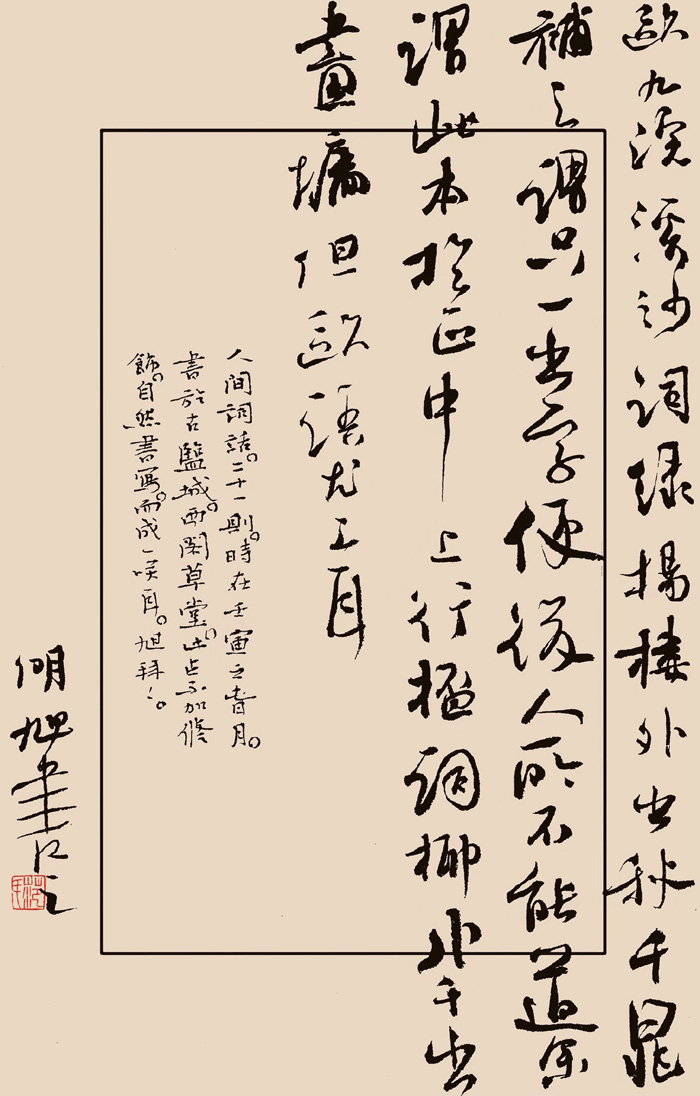 歐九浣溪沙詞綠楊樓外出秋千晁
補之謂只一出字便後人所不能道余
謂此本於正中上行詞柳外千出
畫墻但歐語尤工耳
人間詞話。二十一則。時在壬寅之春月。
書於古鹽城。西閣草堂。此占不加修
飾。自然書寫。而成一笑耳。旭拜
明旭書之